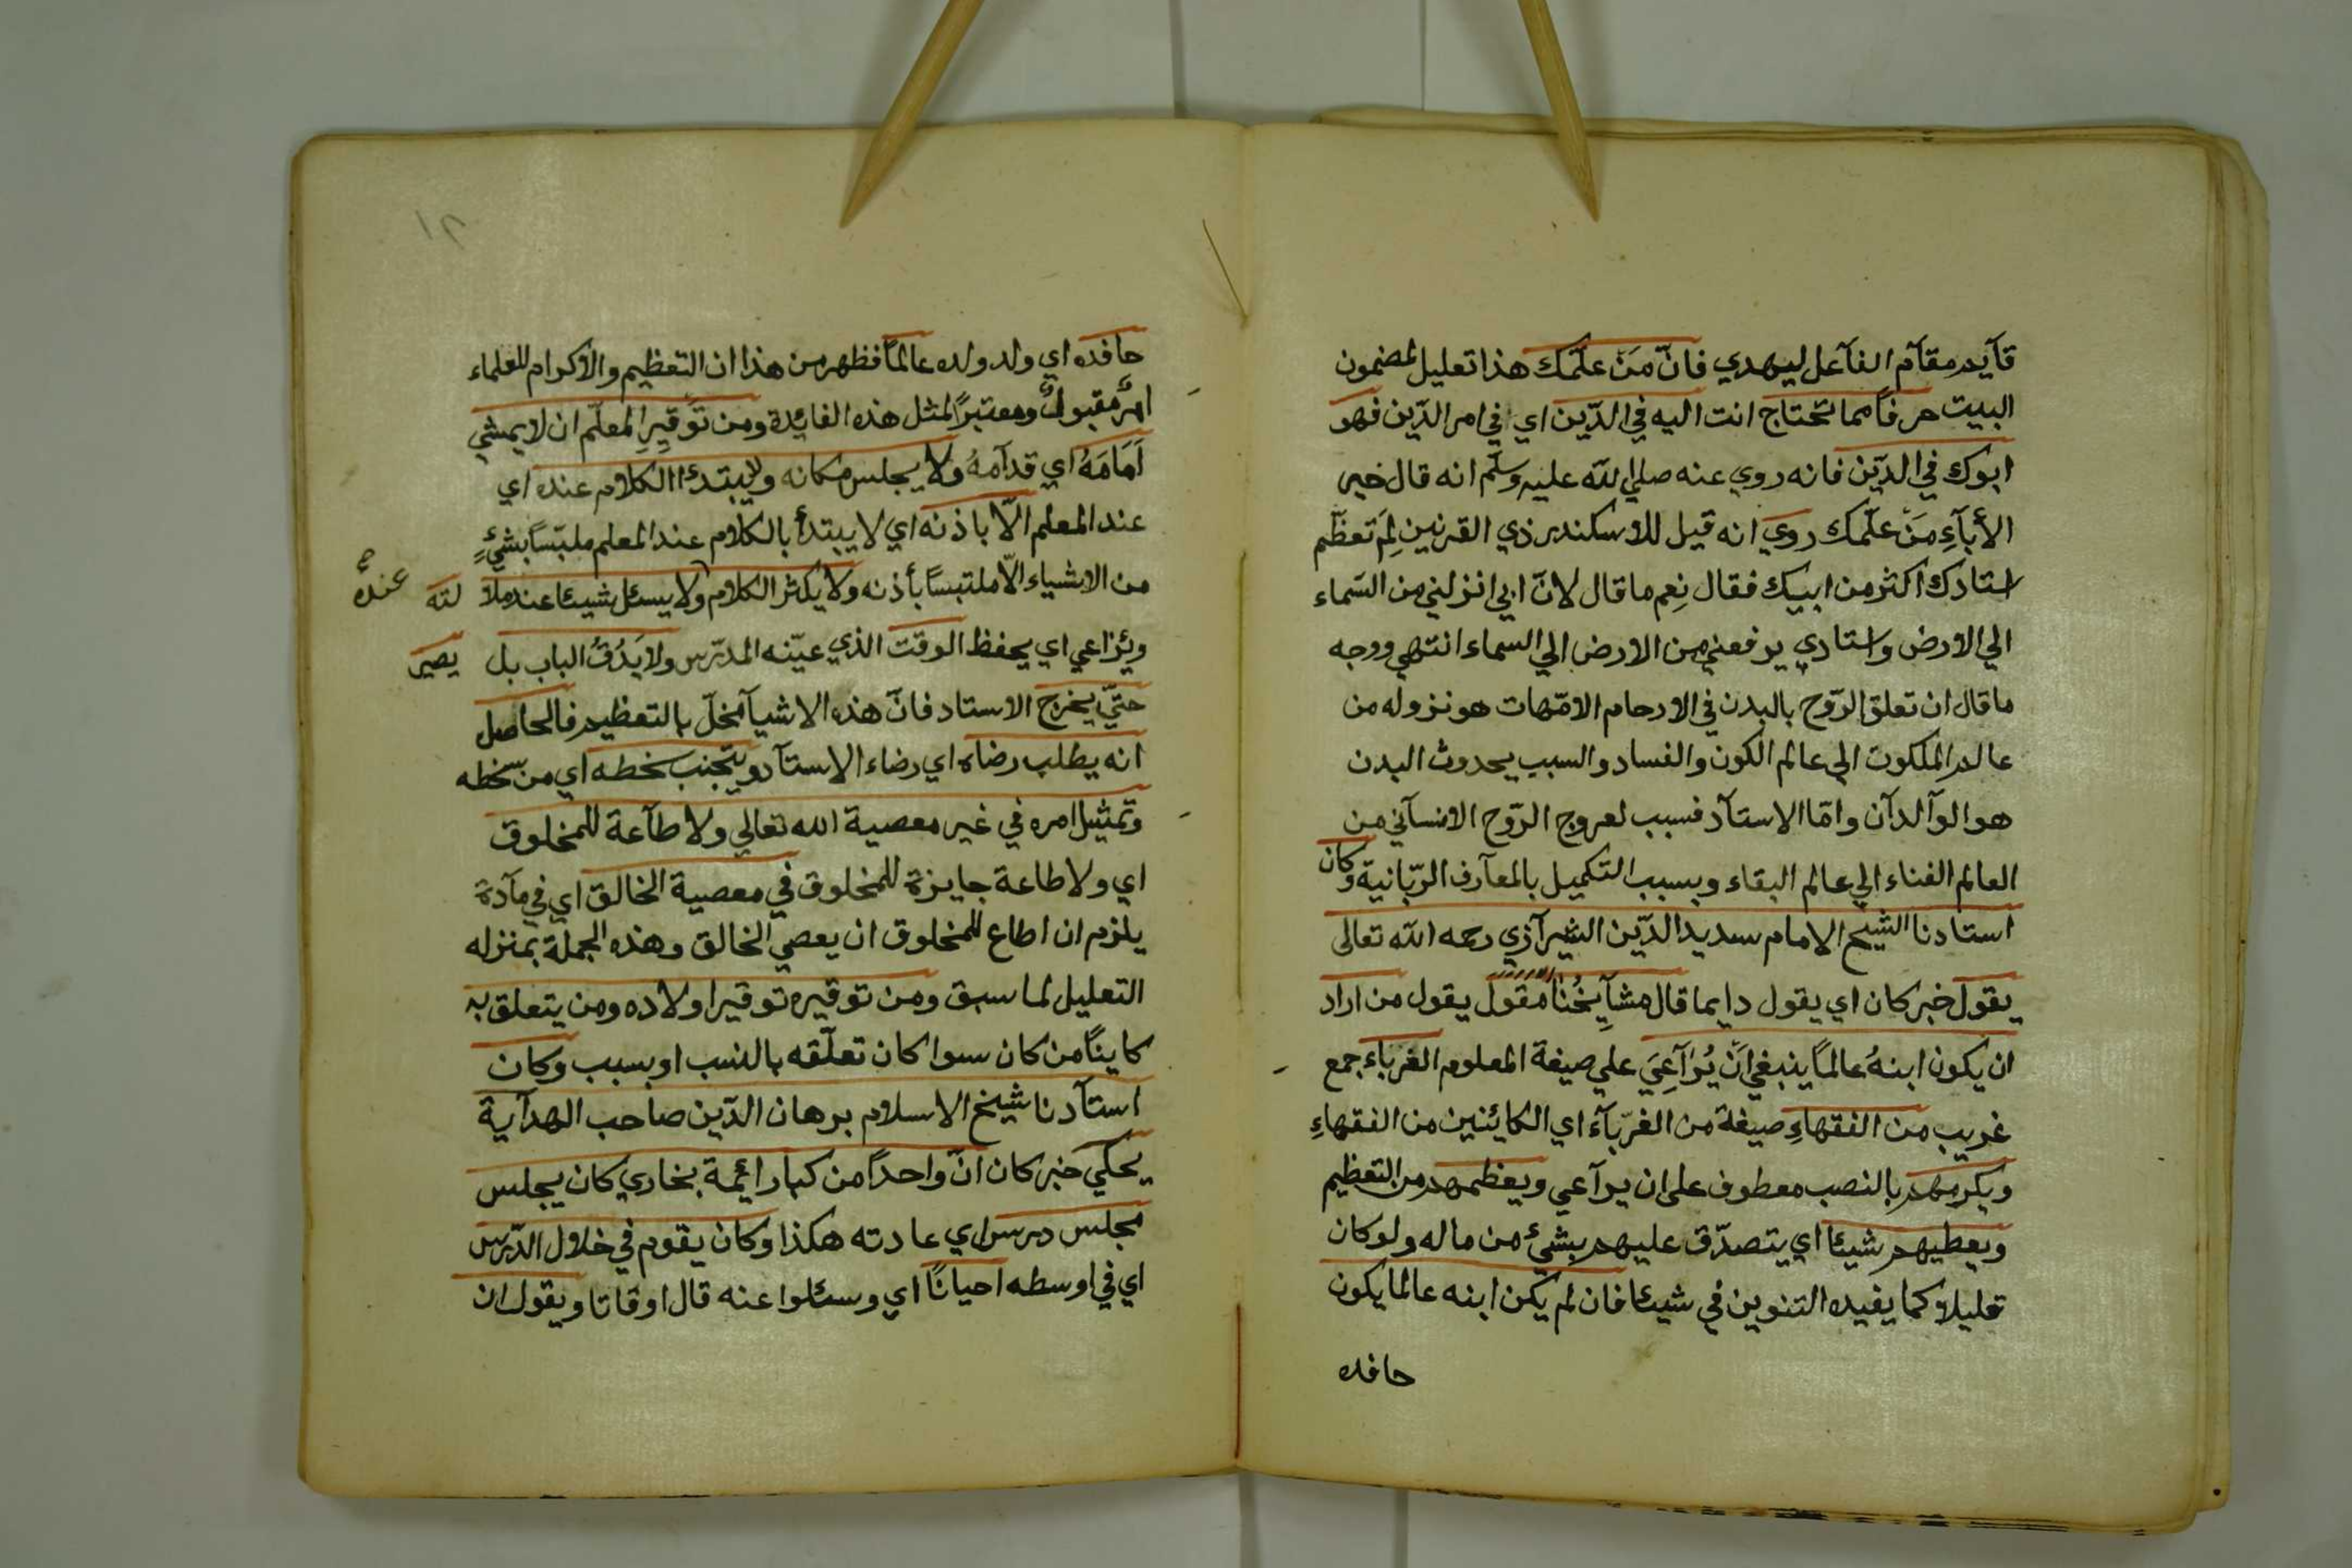 قآيم مقآم الفآعل ليهدي فانّ مَنْ علّمك هذا تعليل لمضمون
البيت حرفاً مما تحتاج انت اليه في الدّين اي في امر الدّين فهو
ابوك في الدّين فانه روي عنه صلي الله عليه وسلّم انه قال خير
الأبآءِ مَنْ علّمك روي انه قيل للاسكندر ذي القرنين لِمَ تعظّم
استادك اكثر من ابيك فقال نِعم ما قال لانّ ابي انزلني من السّماء
الي الارض واستادي يرفعني من الارض الي السماء انتهي ووجه
ما قال ان تعلق الرّوح بالبدن في الارحام الامّهات هو نزوله من
عالم الملكوت الي عالم الكون والفساد والسبب بحدوث البدن
هو الوآلدآن وامّا الاستآد فسبب لعروج الرّوح الانسآني من
العالم الفناء الي عالم البقاء وبسبب التكميل بالمعآرف الرّبّانية وكان
استادنا الشيخ الامام سديد الدّين الشيرآزي رحمه الله تعالى
يقول خبر كان اي يقول دايما قال مشآيِخُنا مقول يقول من اراد
ان يكون ابنهُ عالماً ينبغي اَنْ يُرَآعِيَ علي صيغة المعلوم الغرباء جمع
غريب من الفقهاءِ صيغة من الغربآء اي الكائنين من الفقهاءِ
ويكرمهم بالنصب معطوف على ان يرآعي ويعظمهم من التعظيم
ويعطيهم شيئا اي يتصدّق عليهم بشيْ من ماله ولو كان
قليلا كما يفيده التنوين في شيئا فان لم يكن ابنه عالما يكون
حافده
١٢
حافده اي ولد ولده عالماً فظهر من هذا ان التعظيم والاكرام للعلماء
امرٌ مقبولٌ ومعتبرًا لمثل هذه الفايدة ومن تَوقيرِ المعلّم ان لا يمشي
اَمَامَهُ اي قدآمهُ ولا يجلس مكانه ولا يبتدئ الكلام عنده اي
عند المعلم الّا باذنه اي لا يبتدأ بالكلام عند المعلم ملبّساً بشيْءٍ
من الاشياء الّا ملتبساً بأذنه ولا يكثر الكلام ولا يسئل شيئا عند ملا لته عنده
ويُرَاعي اي يحفظ الوقت الذي عيّنه المدرّس ولا يَدُقُ الباب بل يصبر
حتّي يخرج الاستاد فانّ هذه الاشيآ مخلّ بالتعظيم فالحاصل
انه يطلب رضاه اي رضاء الاستآد ويتجنب سخطه اي من سخطه
وتمثيل امره في غير معصية الله تعالي ولا طآعة للمخلوق
اي ولا طاعة جايزة للمخلوق في معصية الخالق اي في مآدة
يلزم ان اطاع للمخلوق ان يعصي الخالق وهذه الجملة بمنزله
التعليل لما سبق ومن توقيره توقير اولاده ومن يتعلق به
كايناً من كان سوا كان تعلّقه بالنسب او بسبب وكان
استآدنا شيخ الاسلام برهان الدّين صاحب الهدآية
يحكي خبر كان انّ واحداً من كبار ائيمة بخاري كان يجلس
مجلس درس اي عادته هكذا وكان يقوم في خلال الدّرس
اي في اوسطه احيانًا اي وسئلوا عنه قال اوقاتا ويقول ان